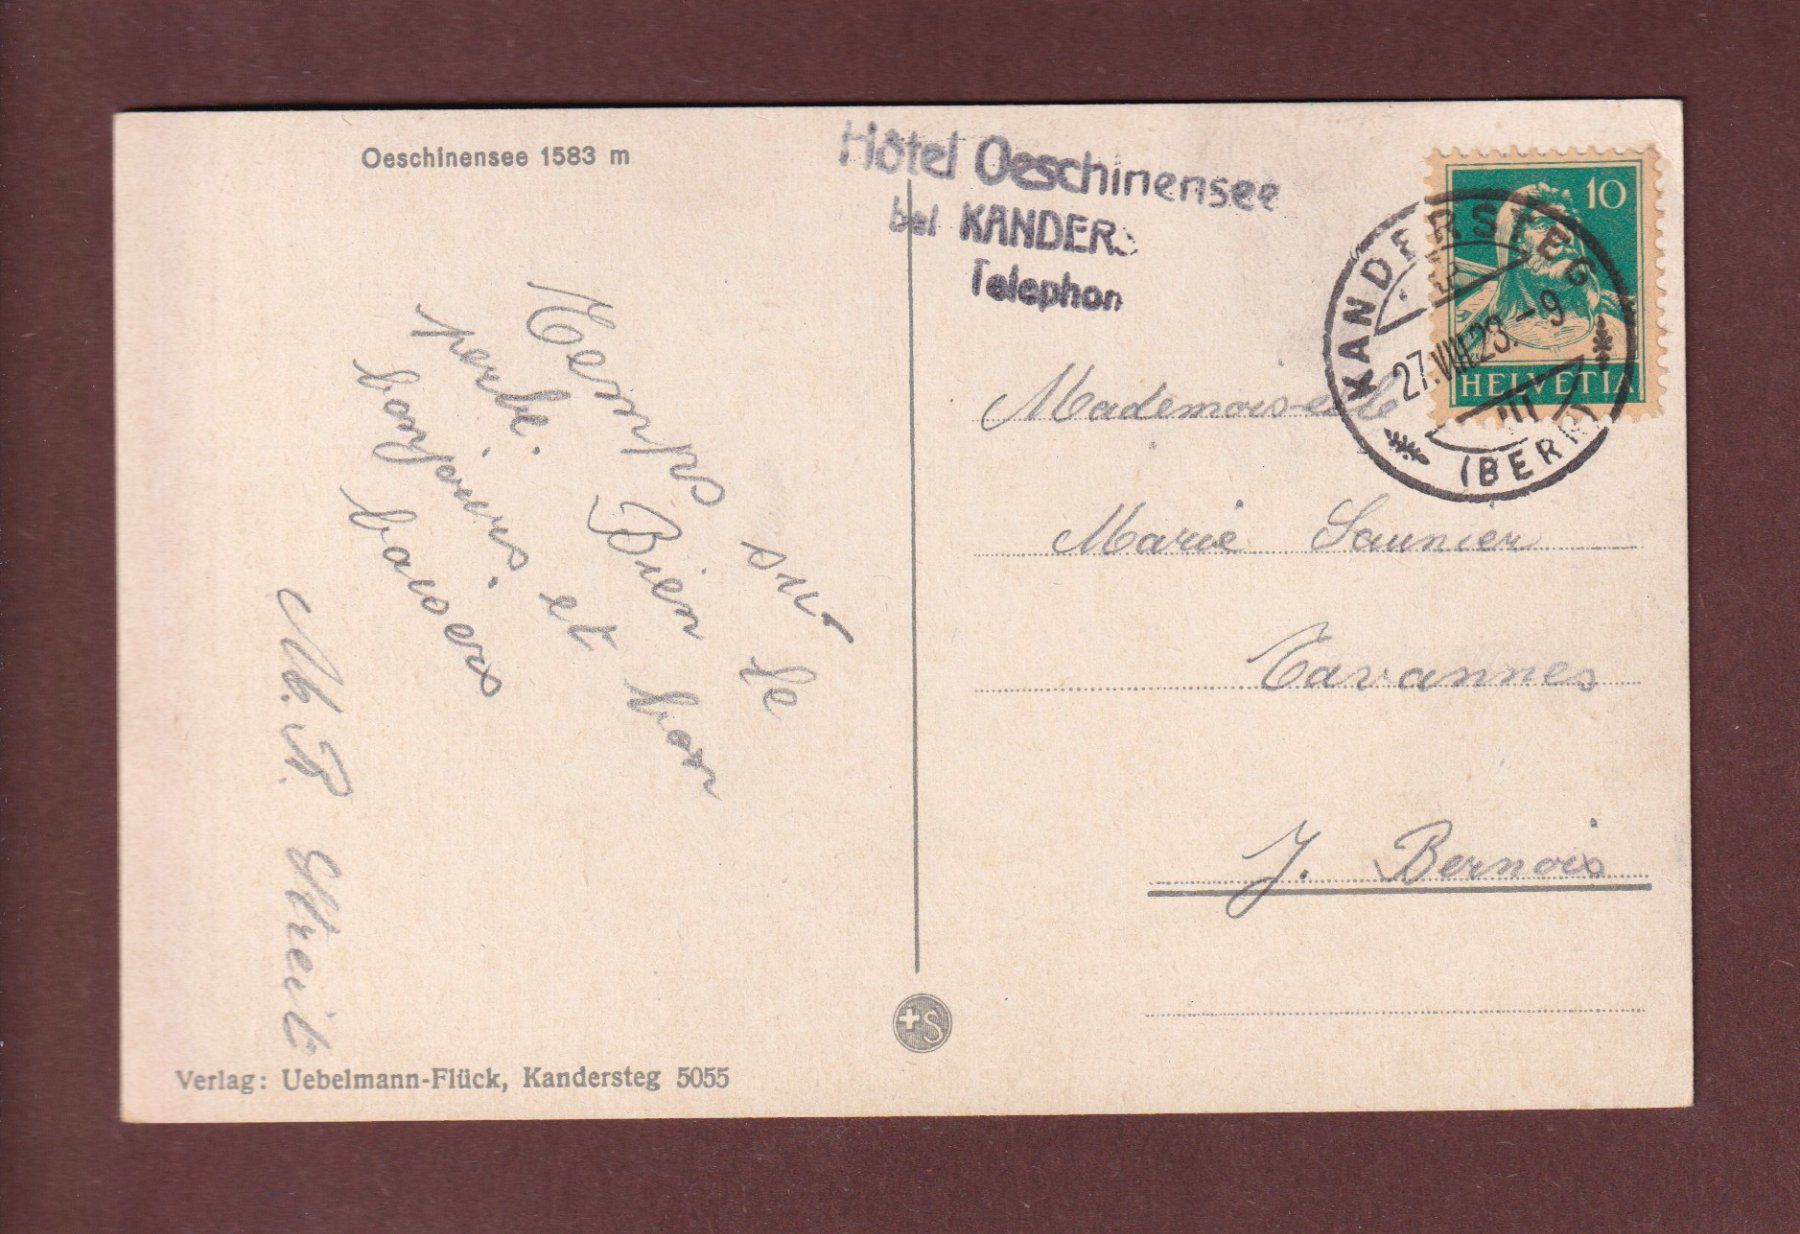 Oeschinensee 1583 m
Hôtel Oeschinensee
bei KANDERS
Telephon
10
HELVETIA
KANDERSTEG
27.VIII.23.-9
(BERN)
Temps su-
perbe. Bien le
bonjours et bon
baisers
M. B. Streit
Mademoiselle
Marie Saunier
Tavannes
J. Bernois
Verlag: Uebelmann-Flück, Kandersteg 5055
+S